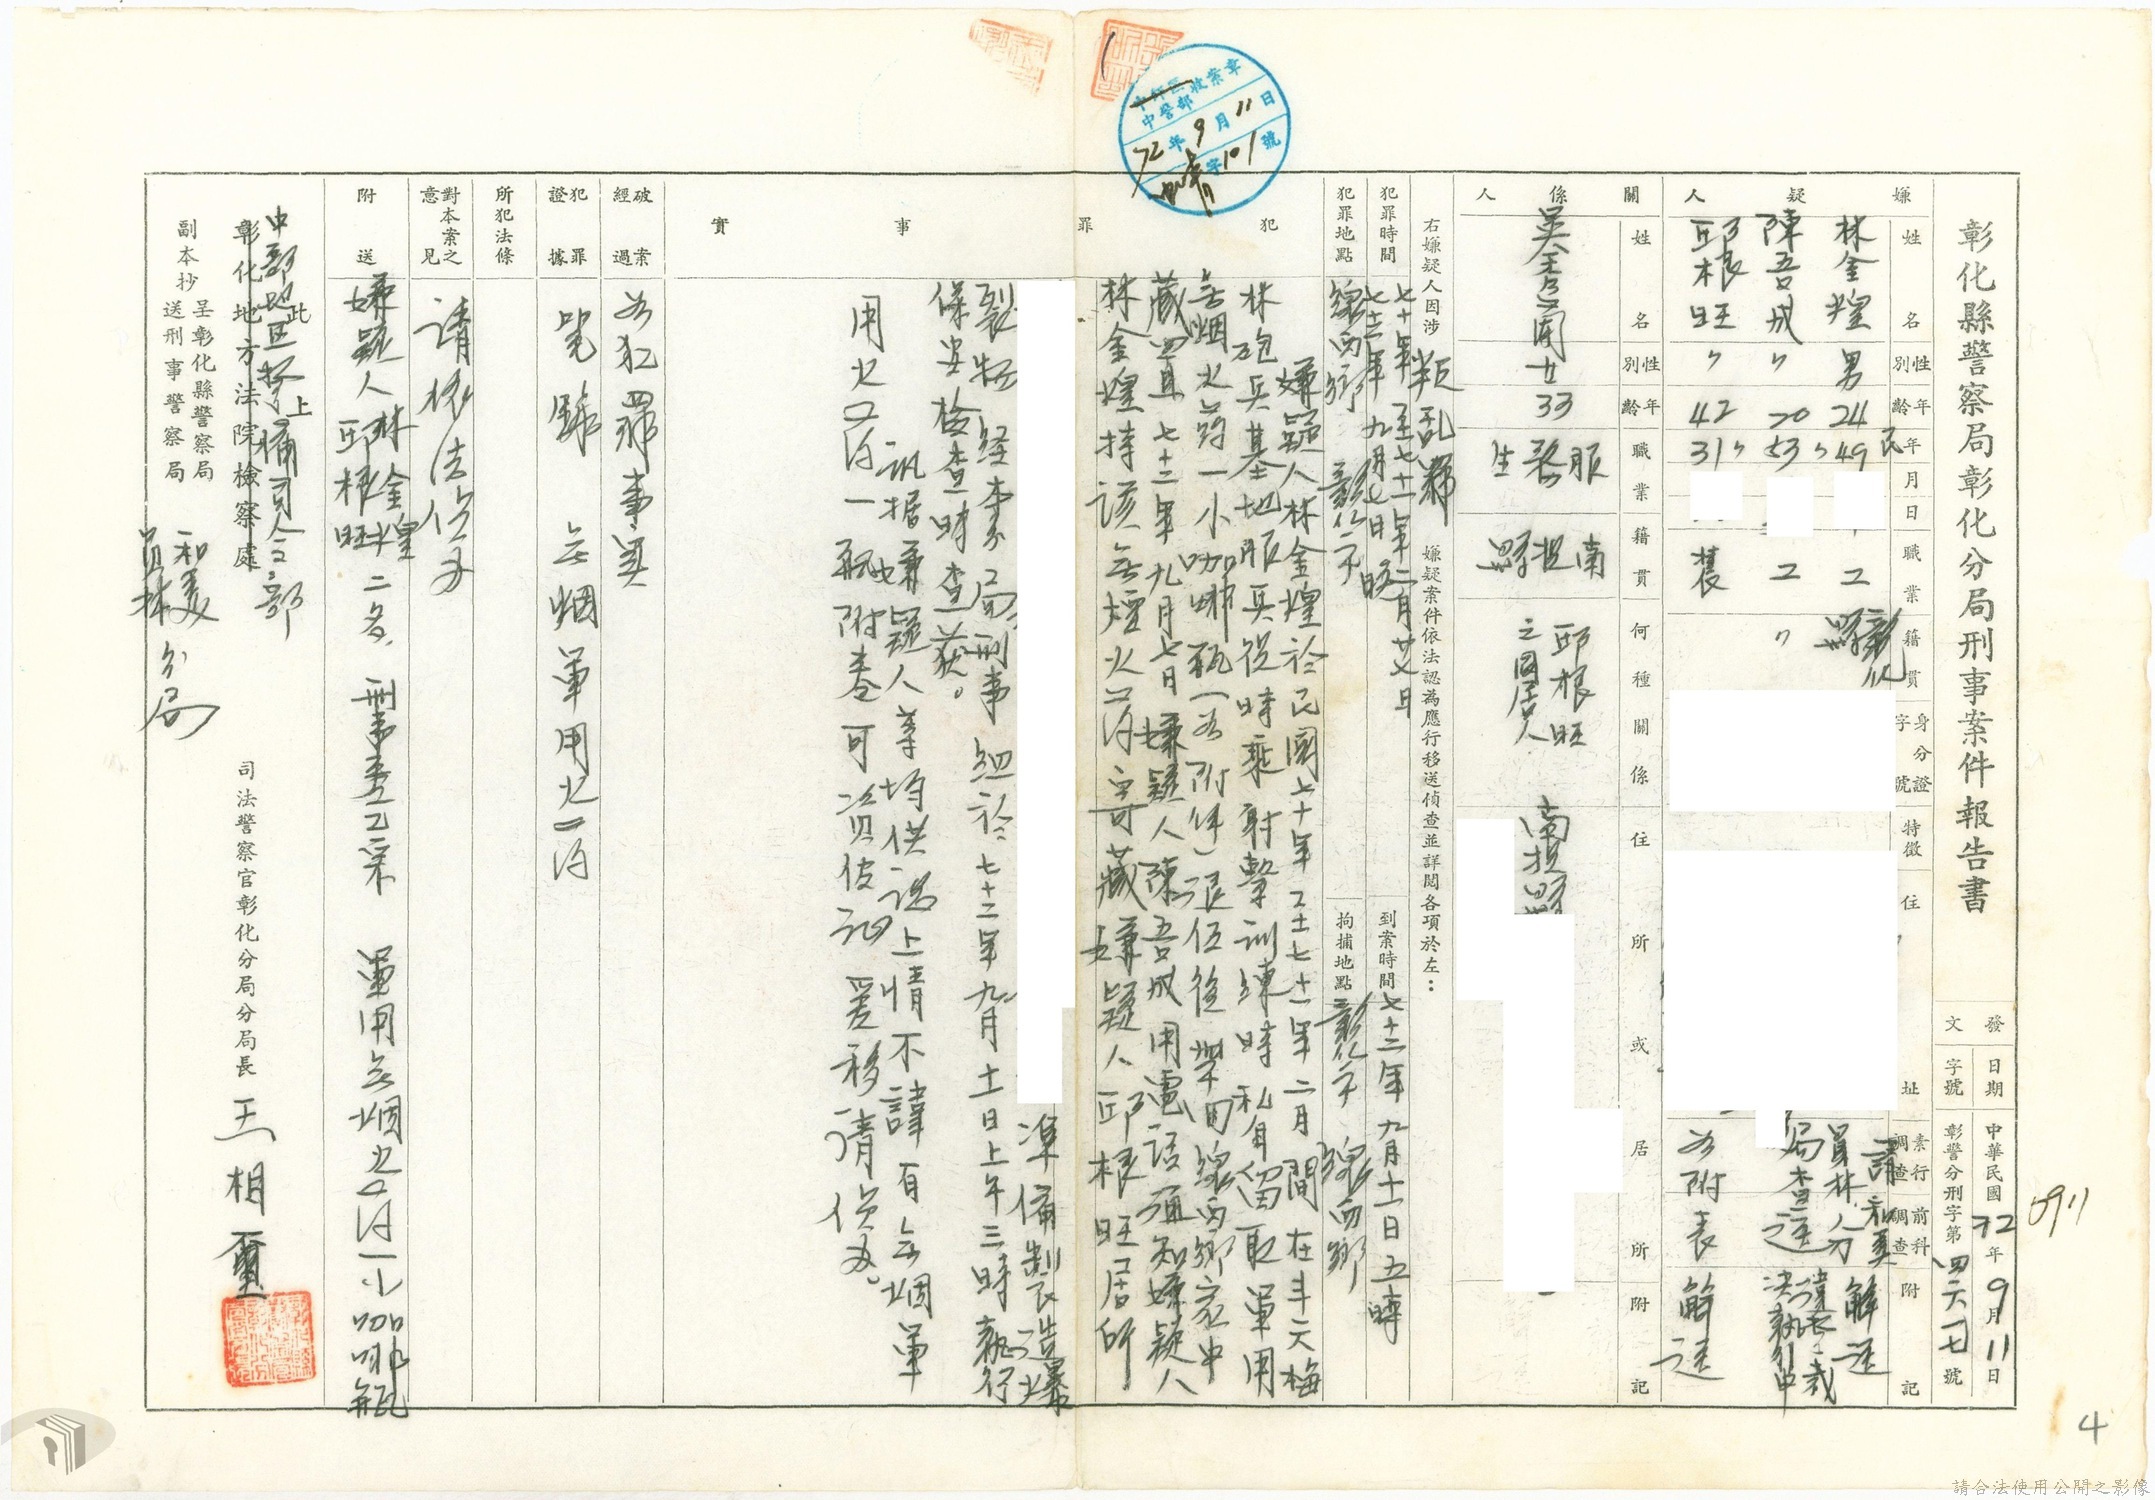 彰化縣警察局彰化分局刑事案件報告書
發文
日期
中華民國72年9月11日
字號
彰警分刑字第四六一七號
嫌疑人
姓名
性別
年齡
年月日
職業
籍貫
身分證字號
特徵
住址
素行調查
前科調查
附記
林金煌
男
24
民49
工
彰化縣
請和美
員林分
局查送
解送
陳吾成
〃
20
〃53
工
〃
違警裁決執行中
邱根旺
〃
42
〃31
農
如附表
解送
關係人
姓名
性別
年齡
職業
籍貫
何種關係
住所或居所
附記
女
33
服務生
南投縣
邱根旺之同居人
南投縣
右嫌疑人因涉
叛乱
嫌疑案件依法認為應行移送偵查並詳閱各項於左：
犯罪時間
七十年至七十一年二月廿日
七十二年九月七日晚
到案時間
七十二年九月十一日五時
犯罪地點
線西鄉 彰化市
拘捕地點
彰化市 線西鄉
犯罪事實
嫌疑人林金煌於民國七十年至七十一年二月間在斗六梅
林砲兵基地服兵役時乘射擊訓練時私自留取軍用
無烟火葯一小咖啡瓶（如附件）退伍後攜回線西鄉家中
藏置且七十二年九月七日嫌疑人陳吾成用電話通知嫌疑人
林金煌持該無煙火葯寄藏嫌疑人邱根旺居所
準備製造爆
裂物経本分局刑事組於七十二年九月十一日上午三時執行
保安檢查時查獲。
訊据嫌疑人等均供認上情不諱有無烟軍
用火葯一瓶附卷可資佐証爰移請偵办。
破案經過
如犯罪事實
犯罪證據
無烟軍用火葯
所犯法條
對本案之意見
請依法偵办
附送
嫌疑人林金煌
邱根旺二名，刑事卷乙宗 軍用無烟火葯一小咖啡瓶
此上
中部地區警備司令部
彰化地方法院檢察處
副本抄
呈彰化縣警察局
送刑事警察局
和美
員林分局
司法警察官彰化分局分局長 王相璽
中警部收案章
72年9月11日
字101號
0911
4
請合法使用公開之影像